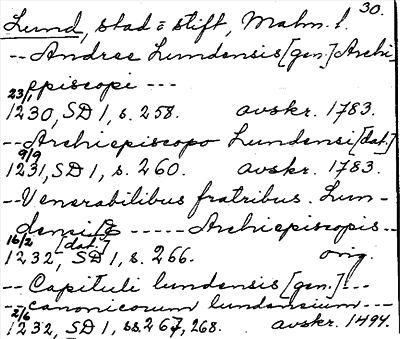 30.
Lund, stad o stift, Malm. l.
-- Andree Lundensis [gen.] Archi-
episcopi ---
23/1
1230, SD 1, s. 258. avskr. 1783.
-- Archiepiscopo Lundensi [dat.]
9/9
1231, SD 1, s. 260. avskr. 1783.
-- Venerabilibus fratribus. Lun-
densi & ----- Archiepiscopis --
16/2 [dat.]
1232, SD 1, s. 266. orig.
-- Capituli lundensis [gen.] ---
-- canonicorum lundensium ---
2/6
1232, SD 1, ss. 267, 268. avskr. 1494.